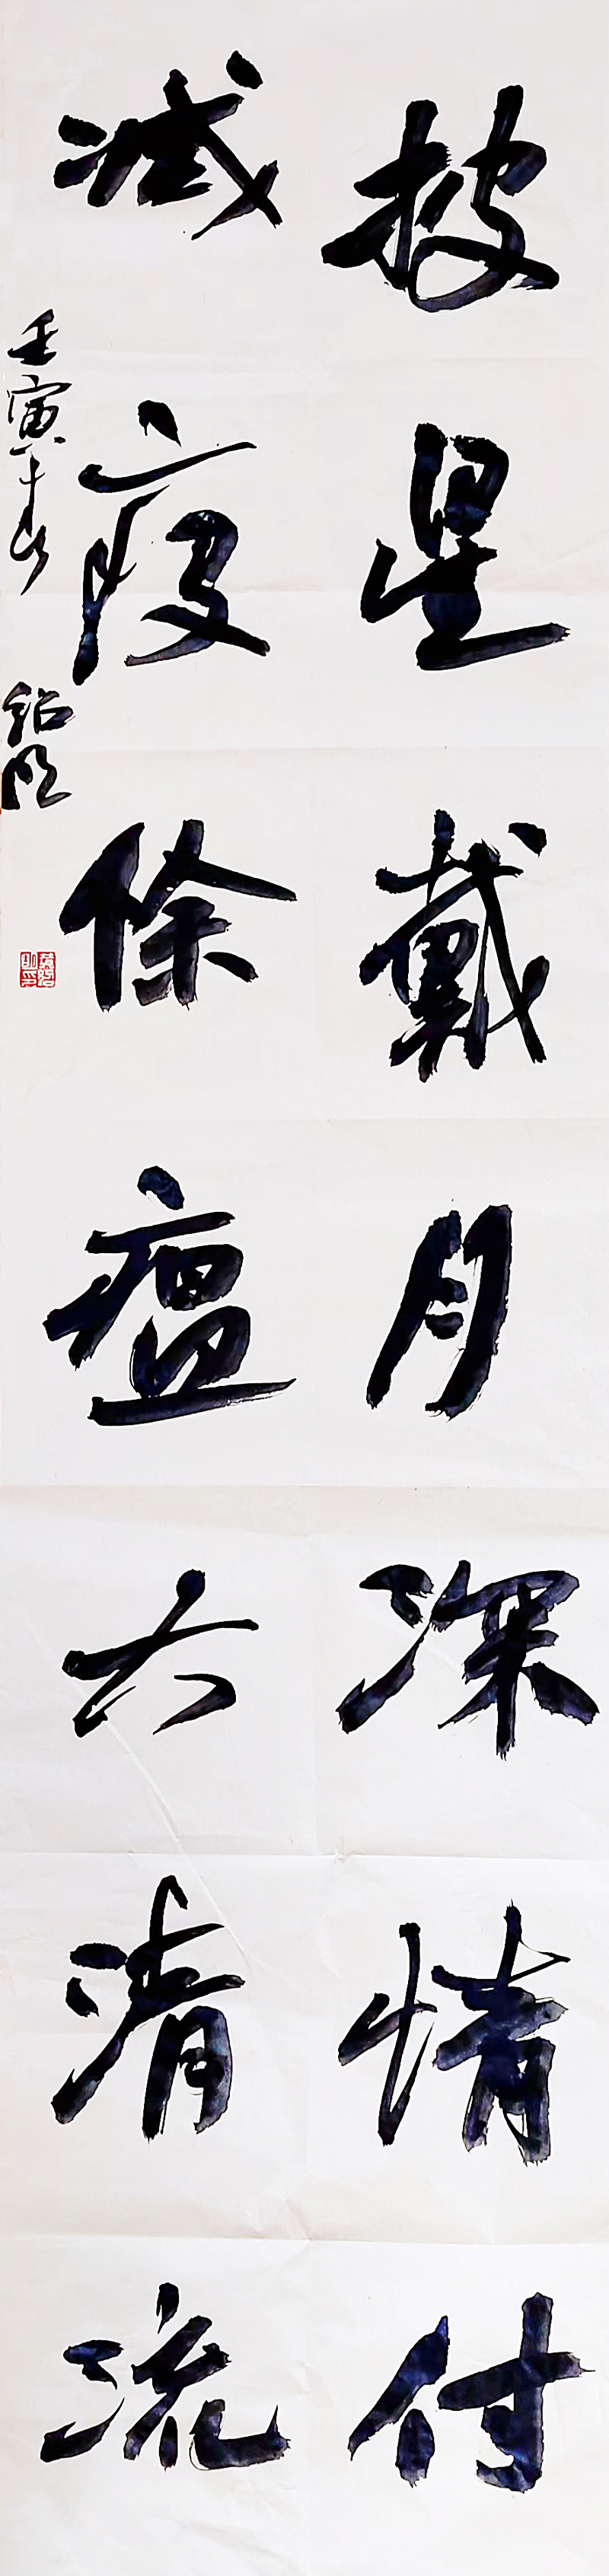 披星戴月深情付
滅疫除瘟六清流
壬寅
紹明